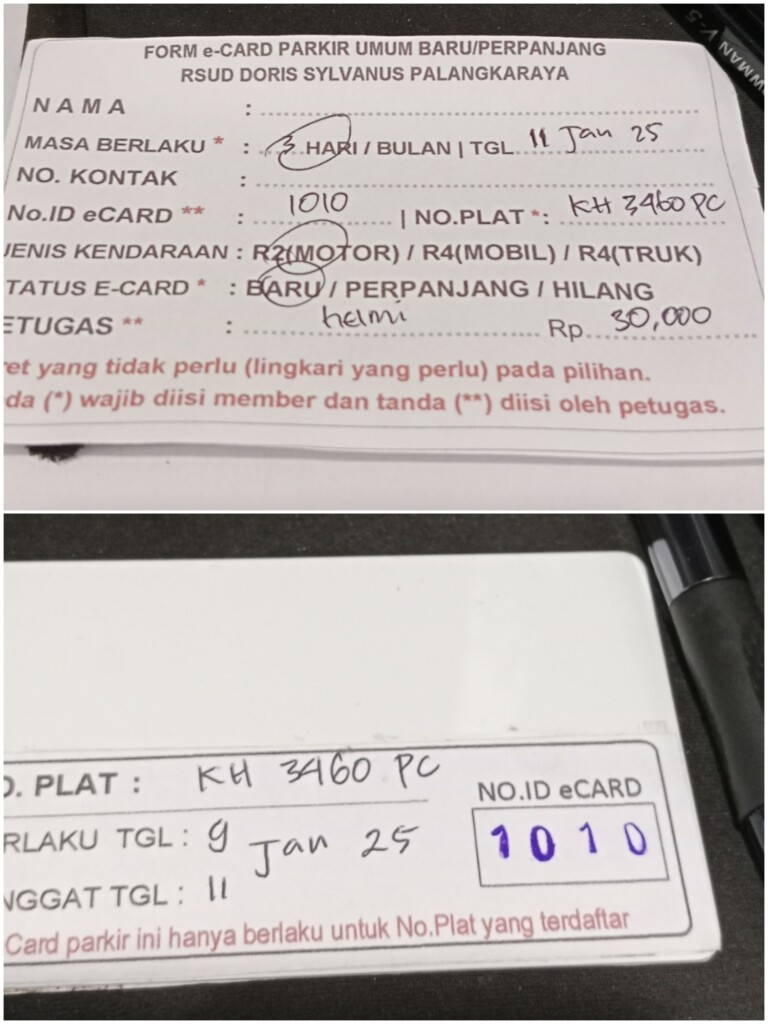 WMAN V-5
FORM e-CARD PARKIR UMUM BARU/PERPANJANG
RSUD DORIS SYLVANUS PALANGKARAYA
NAMA :
MASA BERLAKU * : 3 HARI / BULAN | TGL 11 Jan 25
NO. KONTAK :
No.ID eCARD ** : 1010 | NO.PLAT *: KH 3460 PC
JENIS KENDARAAN : R2(MOTOR) / R4(MOBIL) / R4(TRUK)
TATUS E-CARD * : BARU / PERPANJANG / HILANG
ETUGAS ** : helmi Rp. 30,000
ret yang tidak perlu (lingkari yang perlu) pada pilihan.
da (*) wajib diisi member dan tanda (**) diisi oleh petugas.
O. PLAT : KH 3460 PC
NO.ID eCARD
RLAKU TGL : 9 Jan 25
1010
NGGAT TGL : 11
Card parkir ini hanya berlaku untuk No.Plat yang terdaftar